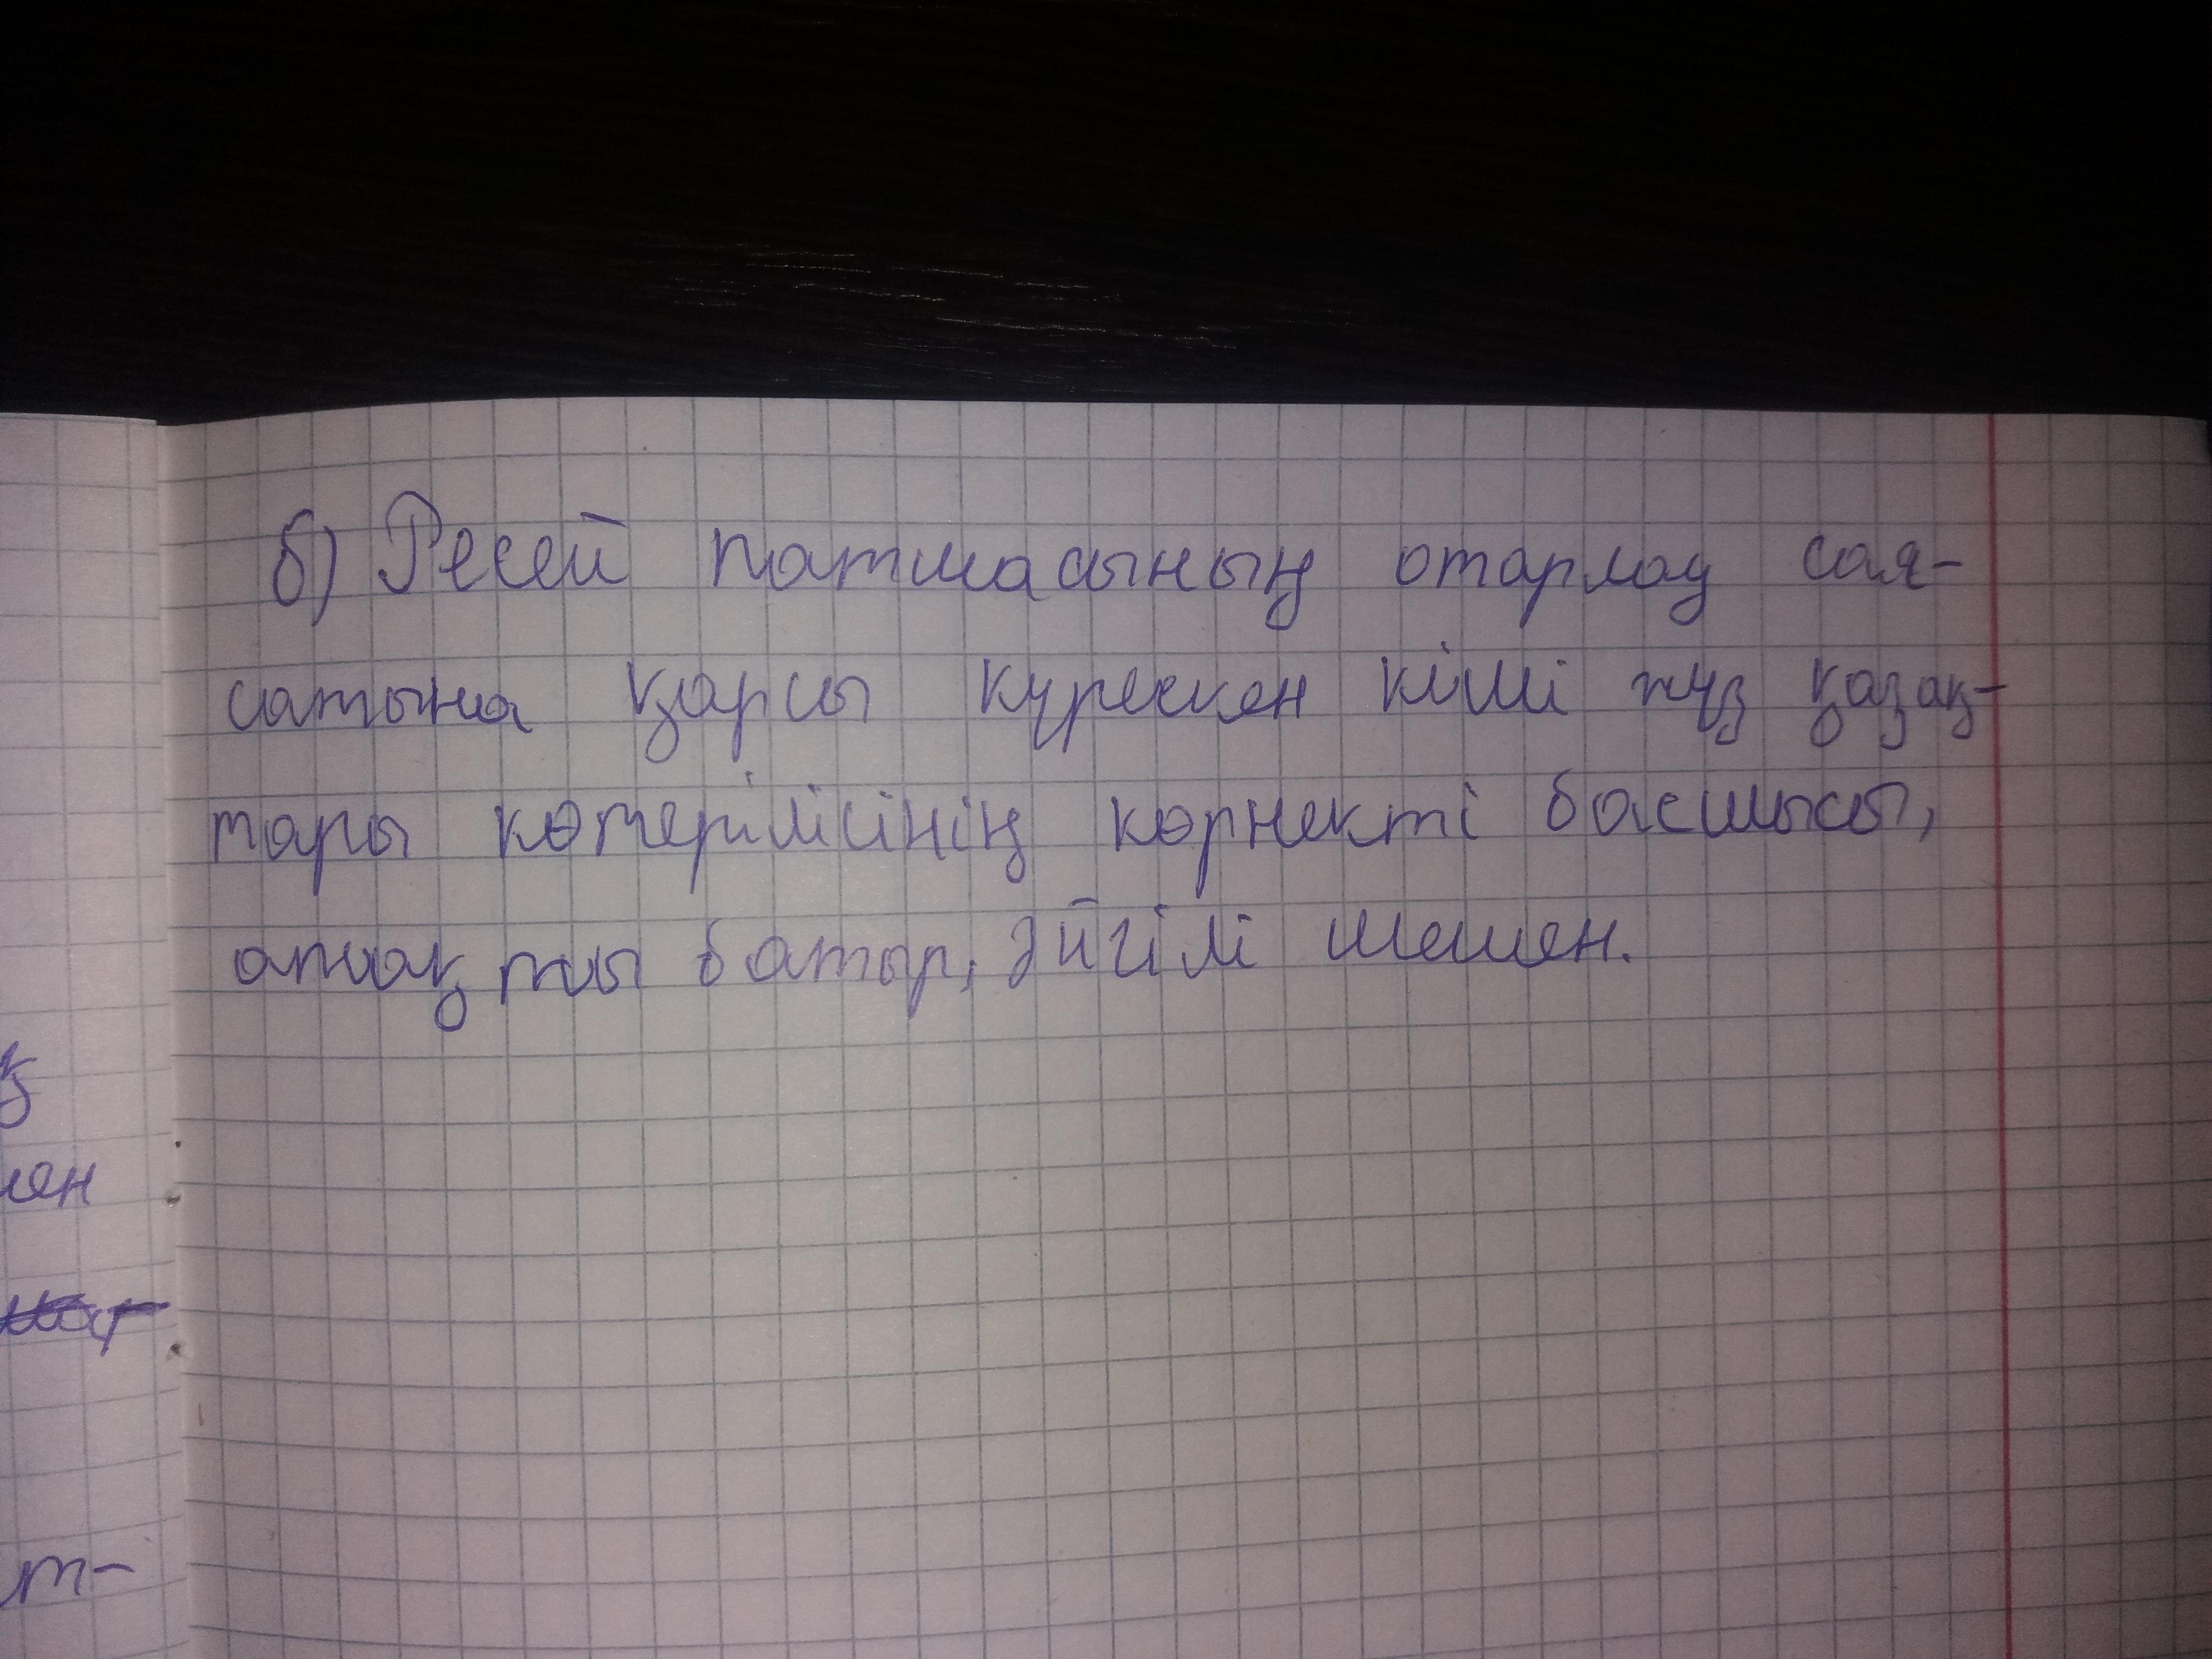 б) Ресей патшасының отарлау сая-
сатына қарсы күрескен кіші жүз қазақ-
тары көтерілісінің көрнекті басшысы,
атақты батыр, әйгілі шешен.